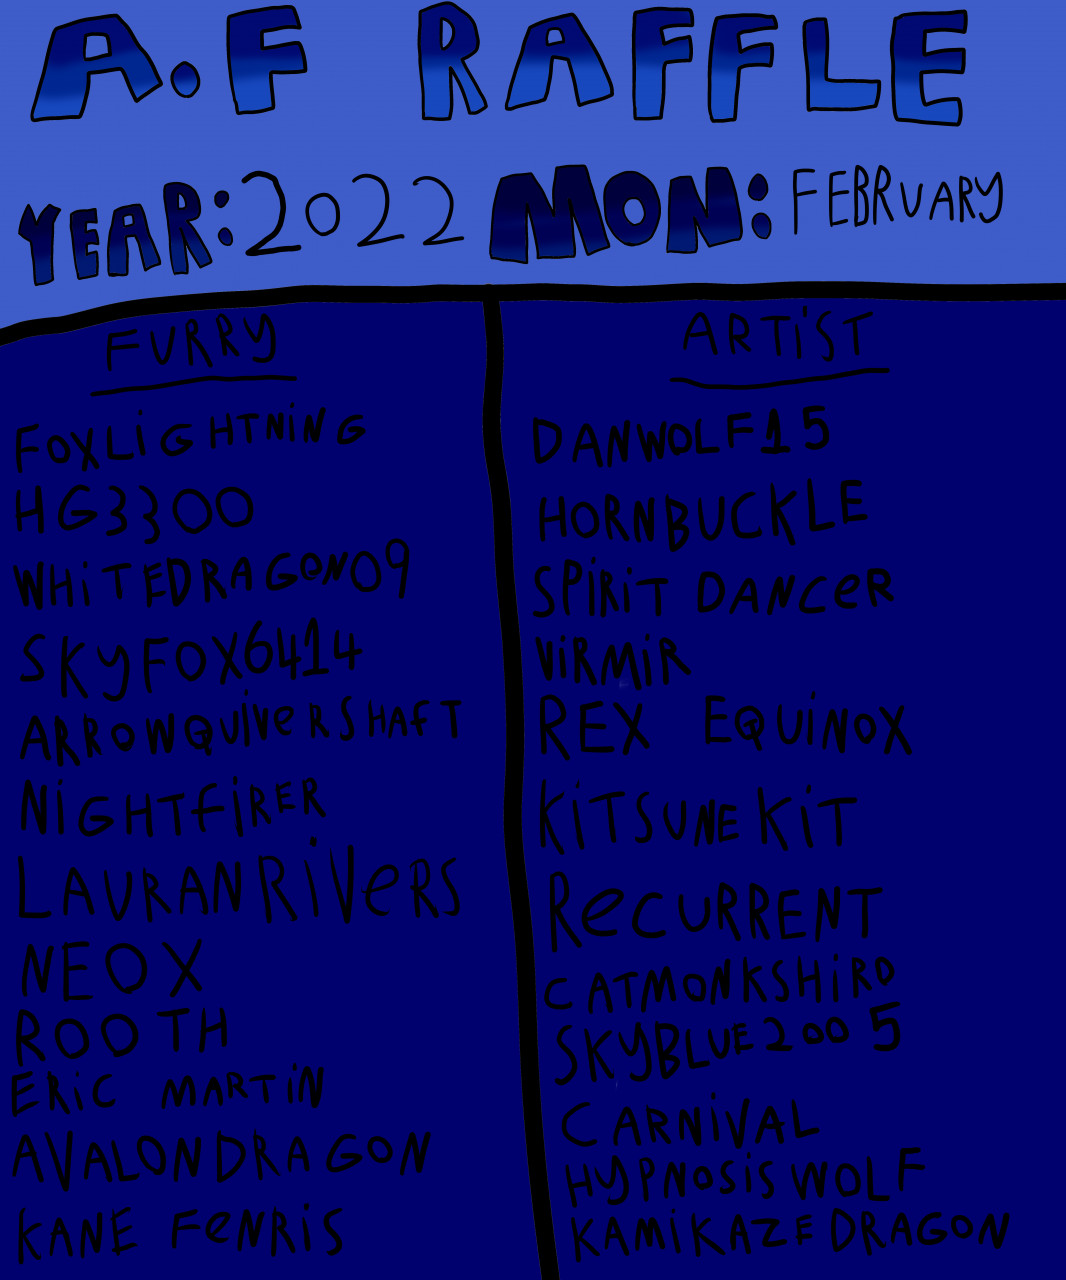 A.F RAFFLE
YEAR: 2022 MON: FEBRUARY
FURRY
FOXLiGHTNiNG
HG3300
WHiTEDRAGON09
SKyFOX6414
ARROWQUiVeRSHAfT
NiGHTFiRER
LAURANRiVeRS
NEOX
ROOTH
ERiC MARTiN
AVALONDRAGON
KANE FeNRiS
ARTiST
DANWOLF15
HORNBUCKLE
SPiRiT DANCeR
ViRMiR
REX EQUiNOX
KiTSUNEKiT
ReCURRENT
CATMONKSHiRO
SKYBLUE2005
CARNiVAL
HYPNOSiS WOLF
KAMiKAZEDRAGON